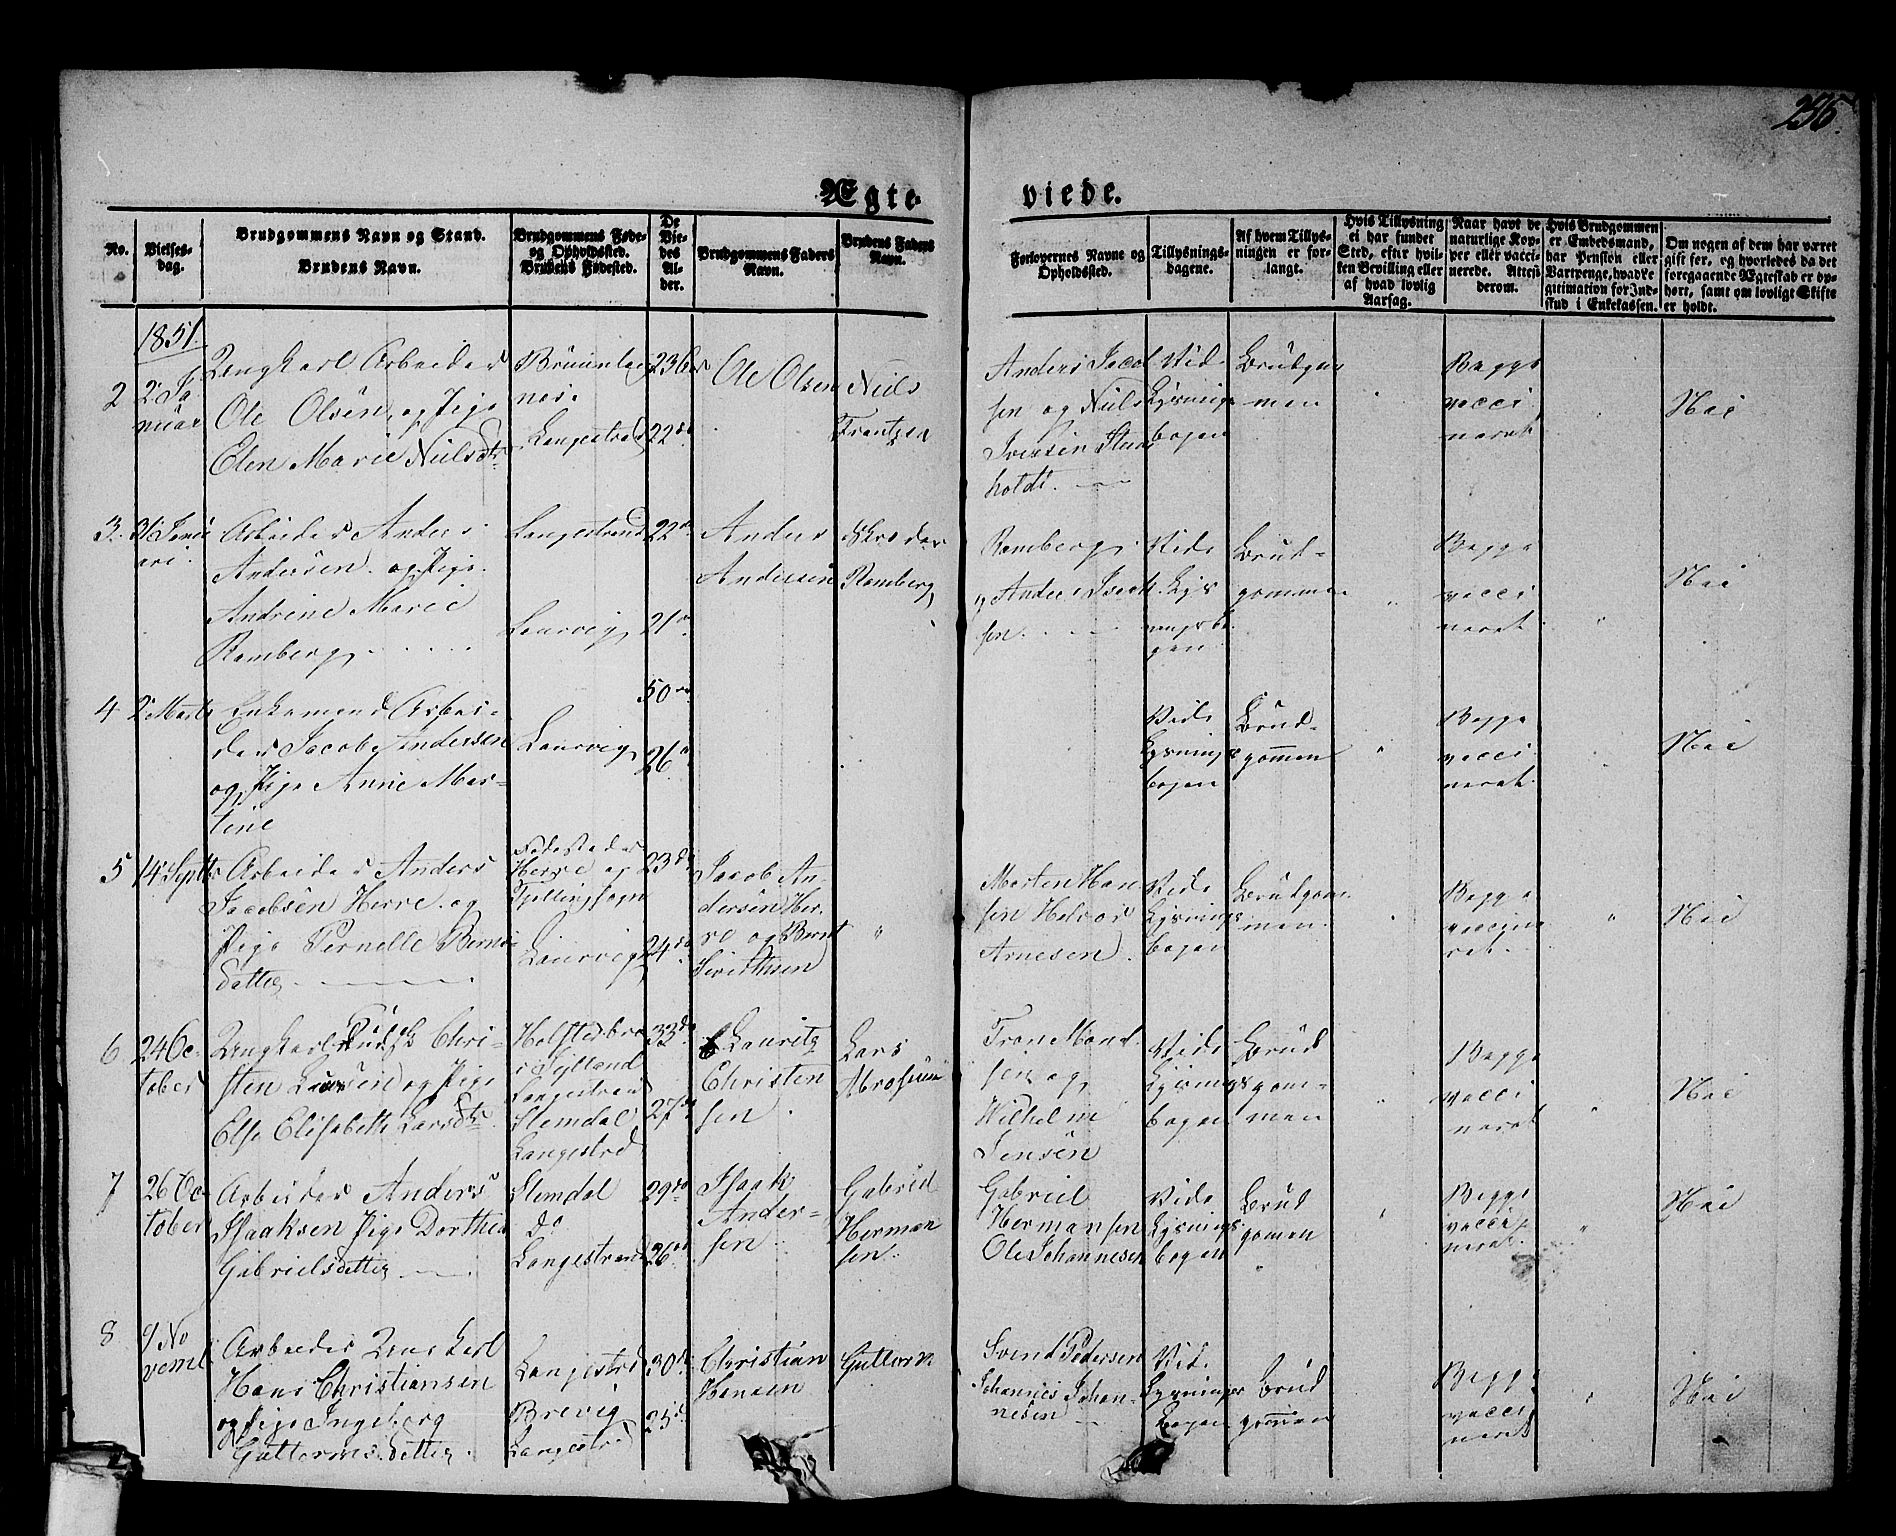 236.
Ægte
viede.
No.
Vielses-
dag.
Brudgommens Navn og Stand.
Brudens Navn.
Brudgommens Føde-
og Opholdssted.
Brudens Fødested.
De
Vie-
des
Al-
der.
Brudgommens Faders
Navn.
Brudens Faders
Navn.
Forlovernes Navne og
Opholdssted.
Tillysnings-
dagene.
Af hvem Tillys-
ningen er for-
langt.
Hvis Tillysning
ei har fundet
Sted, efter hvil-
ken Bevilling eller
af hvad lovlig
Aarsag.
Naar havt de
naturlige Kop-
per eller vacci-
nerede. Attesi
derom.
Hvis Brudgommen
er Embedsmand,
har Pension eller
Vartpenge, hvad Le-
gitimation for Ind-
skud i Enkekassen.
Om nogen af dem har været
gift før, og hvorledes da det
foregaaende Ægteskab er op-
hørt, samt om lovligt Skifte
er holdt.
1851.
2
2 Ja
nuar
Ungkarl Arbeider
Ole Olsen, og Pige
Elen Marie Nielsdtr
Langestrand
23
22
Ole Olsen
Niels
Frantzen
Anders Jacob
sen og Niels
Iversen
holdt.
Vide
Lysnings
bogen
Brudgom
men
Begge
vacci
neret
Nei
3.
31 Janu
ari.
Arbeider Anders
Andersen og Pige
Andrine Marie
Ramberg
Langestrand
Laurvig
22
21
Anders
Andersen
Skreder
Ramberg
Ramberg
Anders Isak
sen.
Vide
Lys
nings bo
gen
Brud-
gommen
Begge
vacci
neret
Nei
4
2 Marts
Enkemand Arbei-
der Jacob Andersen
og Pige Anne Mar-
tine
Laurvig
50
26
Vide
Lysnings
bogen
Brud-
gomen
Begge
vacci
neret
Nei
5
14 Septbr
Arbeider Anders
Jacobsen Herre og
Pige Pernelle Bernts
datter
Fødesteder
Herre og
Tjøllingsogn
Laurvig
23
24
Jacob An-
dersen Her-
re og Bernt
Morten Han
sen Halvor
Arnesen
Vide
Lysnings
bogen
Brudgom
men
Begge
vaccine
ret.
Nei
6
24 Oc-
tober
Ungkarl Chri-
sten og Pige
Else Elisabeth Larsdtr
Holstedbro
i Jylland
Langestrand
Slemdal
Langestrd
33
27
Lauritz
Christen
sen
Lars
Tron Mand
sen og
Wilhelm
Jensen
Vide
Lysnings
bogen
Brud
gom-
men
Begge
vacci
neret
Nei
7
26 Oc-
tober
Arbeider Anders
Isaaksen Pige Dorthea
Gabrielsdatter
Slemdal
do
Langestrand
29
26
Isaak
Ander-
sen
Gabriel
Herman
sen
Gabriel
Hermansen
Ole Johannesen
Vide
Lysnings
bogen
Brud
gomen
Begge
vacci
neret
Nei
8
9 No
vemb.
Arbeider Ungkarl
Hans Christiansen
og Pige Ingeborg
Guttormsdatter
Langestrd
Brevig
Langestrd
30
25
Christian
Hansen
Guttorm
Svend Pedersen
Johannes Johan-
nesen
Vide
Lysnings
Bogen
Brud
gomen
Begge
vacci
neret
Nei